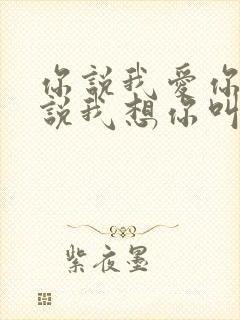 你說我愛你
說我想你叫
紫夜墨